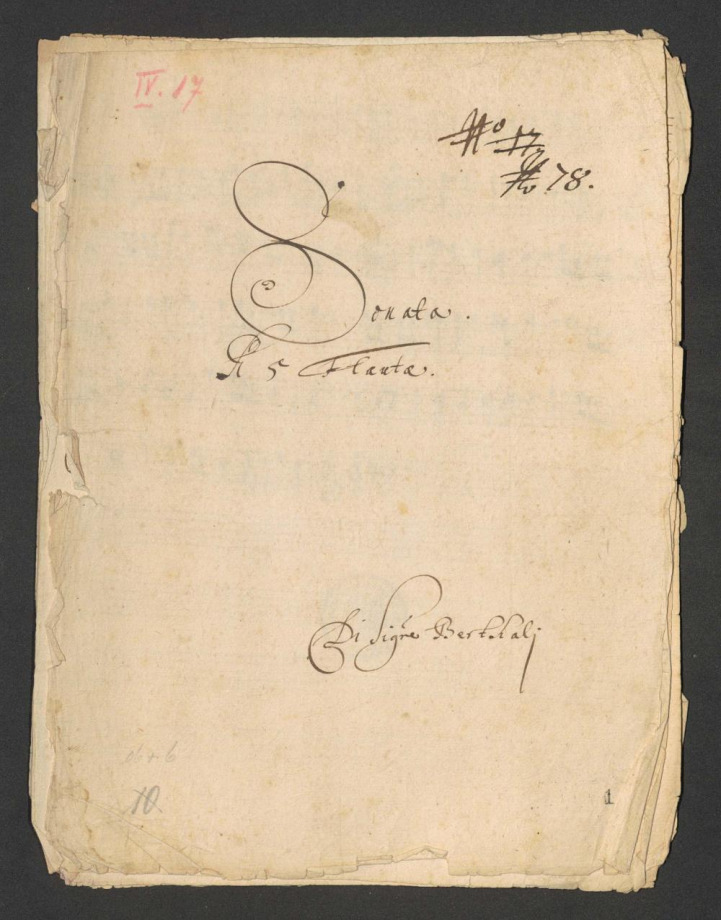 IV. 17
No 17
No 78.
Sonata.
A 5 Flautæ.
Di Sigre Berthali
10.
1